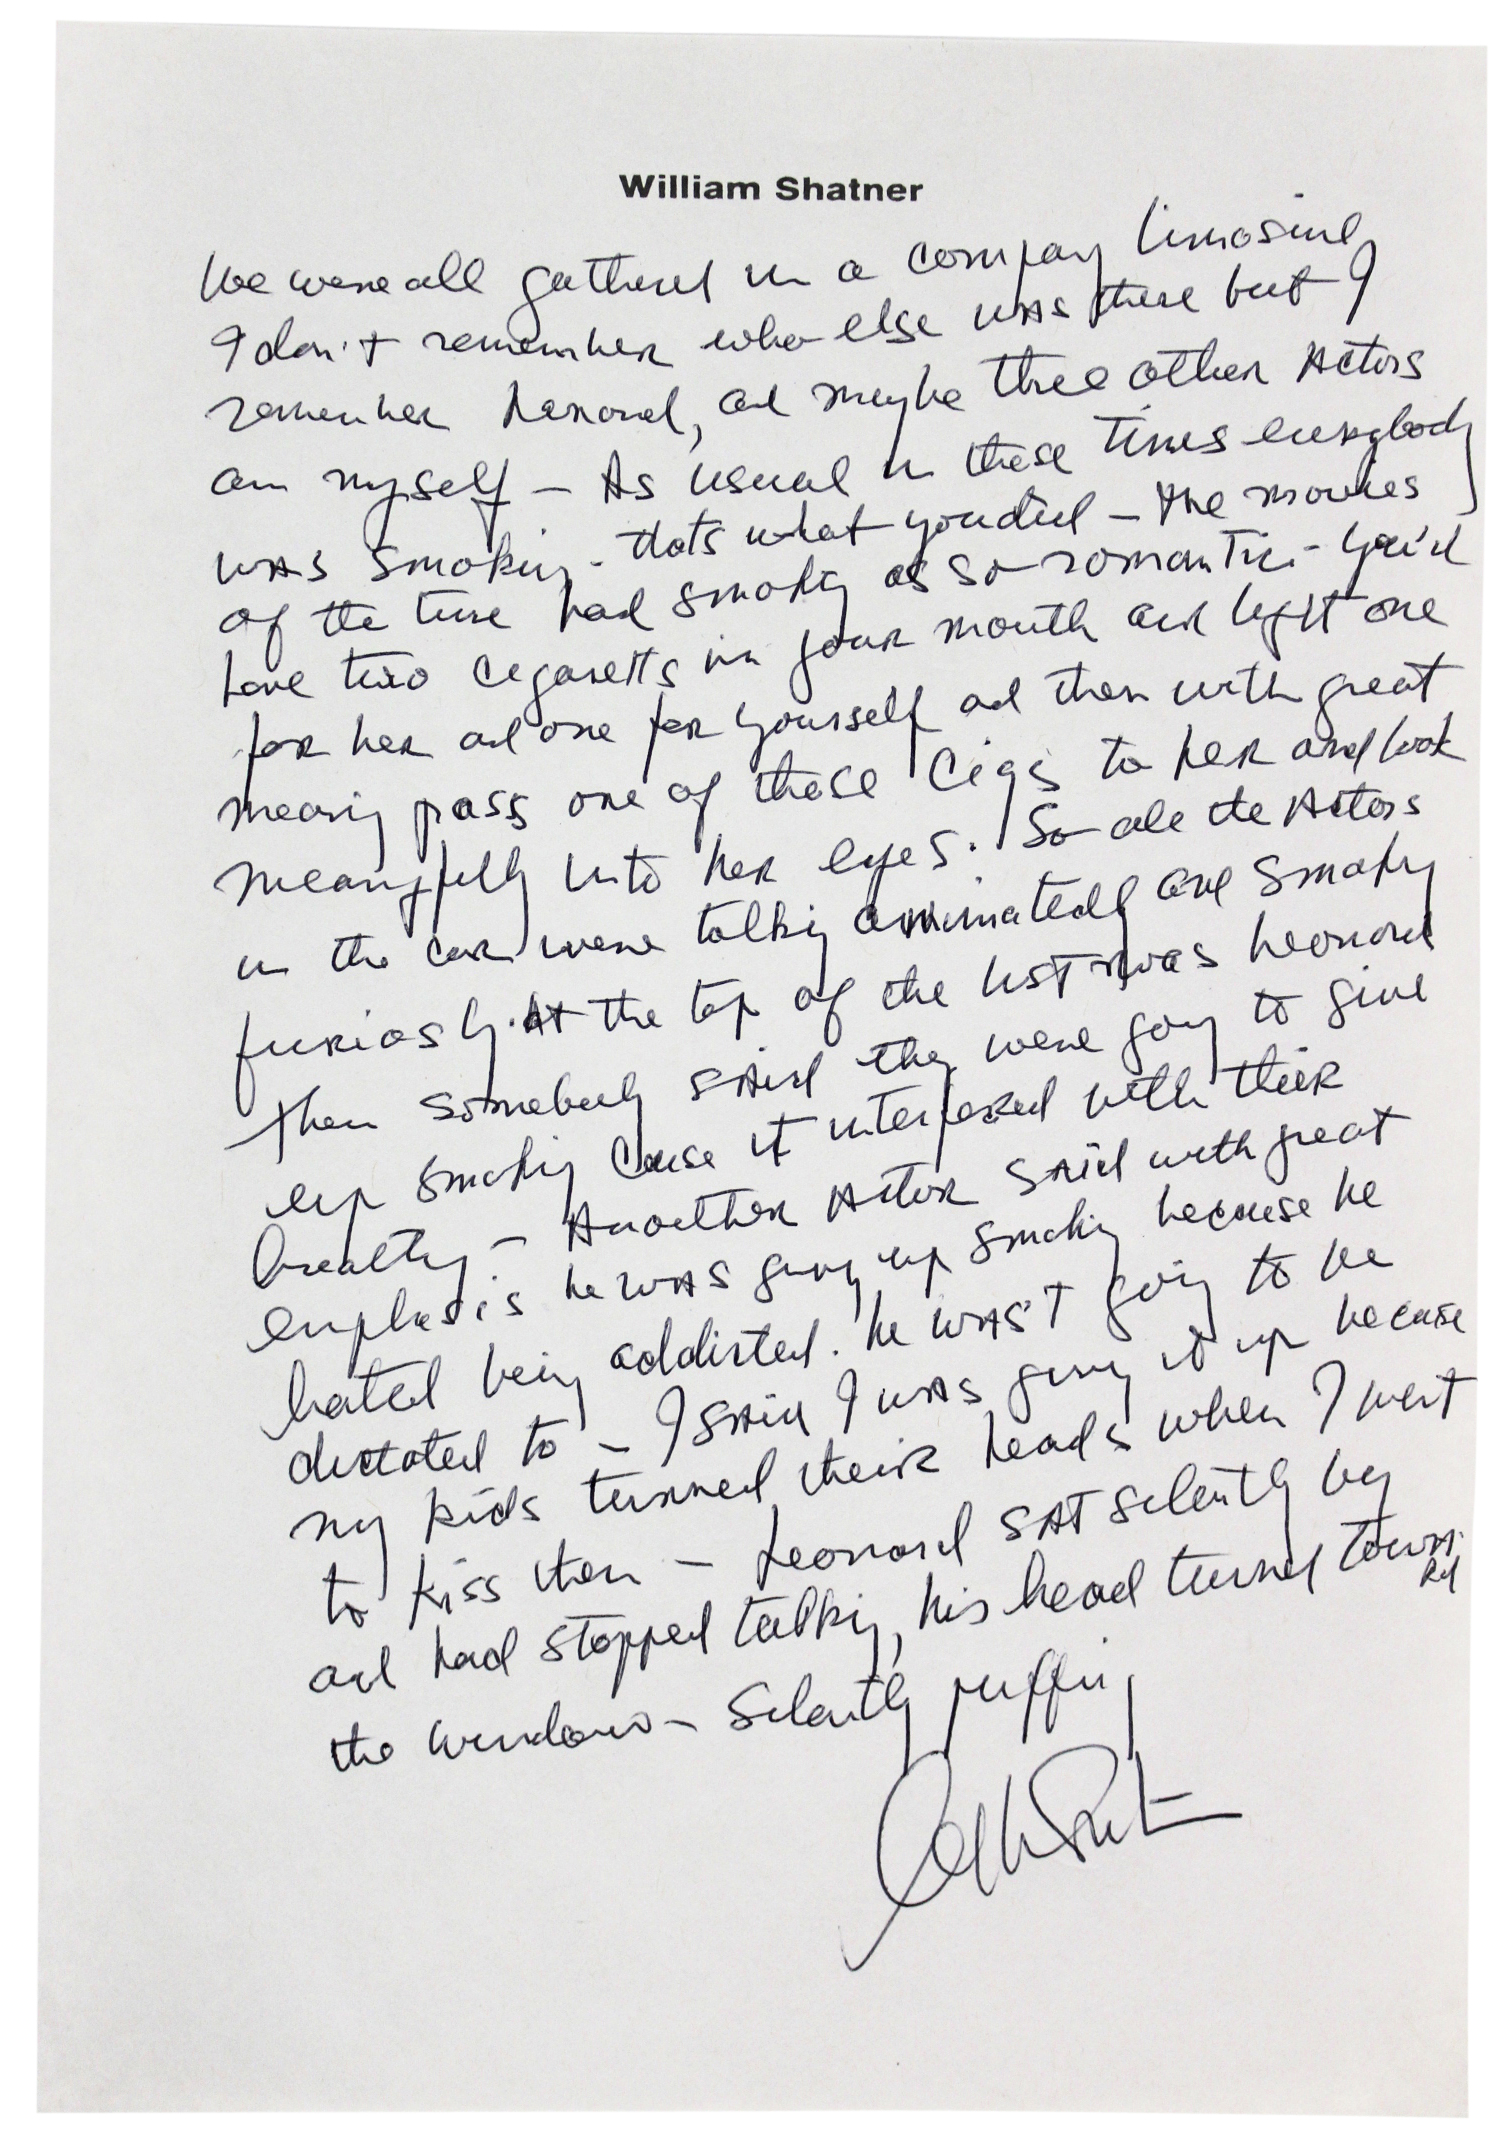 William Shatner
We were all gathered in a company limosine
I don't remember who else was there but I
remember Leonard, and maybe three other Actors
an myself – As usual in these times everybody
was smoking. thats what you did – the movies
of the time had smoking as so romantic – you'd
have two cigaretts in your mouth and light one
for her and one for yourself and then with great
meaning pass one of these Cigs to her and look
meaningfully into her eyes. So all the Actors
in the car were talking animatedly and smoking
furiosly. At the top of the list was Leonard
then somebody said they were going to give
up smoking cause it interfered with their
breathing – Another Actor said with great
emphasis he was giving up smoking because he
hated being addicted. he was't going to be
dictated to – I said I was giving it up because
my kids turned their heads when I went
to kiss them – Leonard sat silently by
and had stopped talking, his head turned towa
rd
the window – Silently puffing